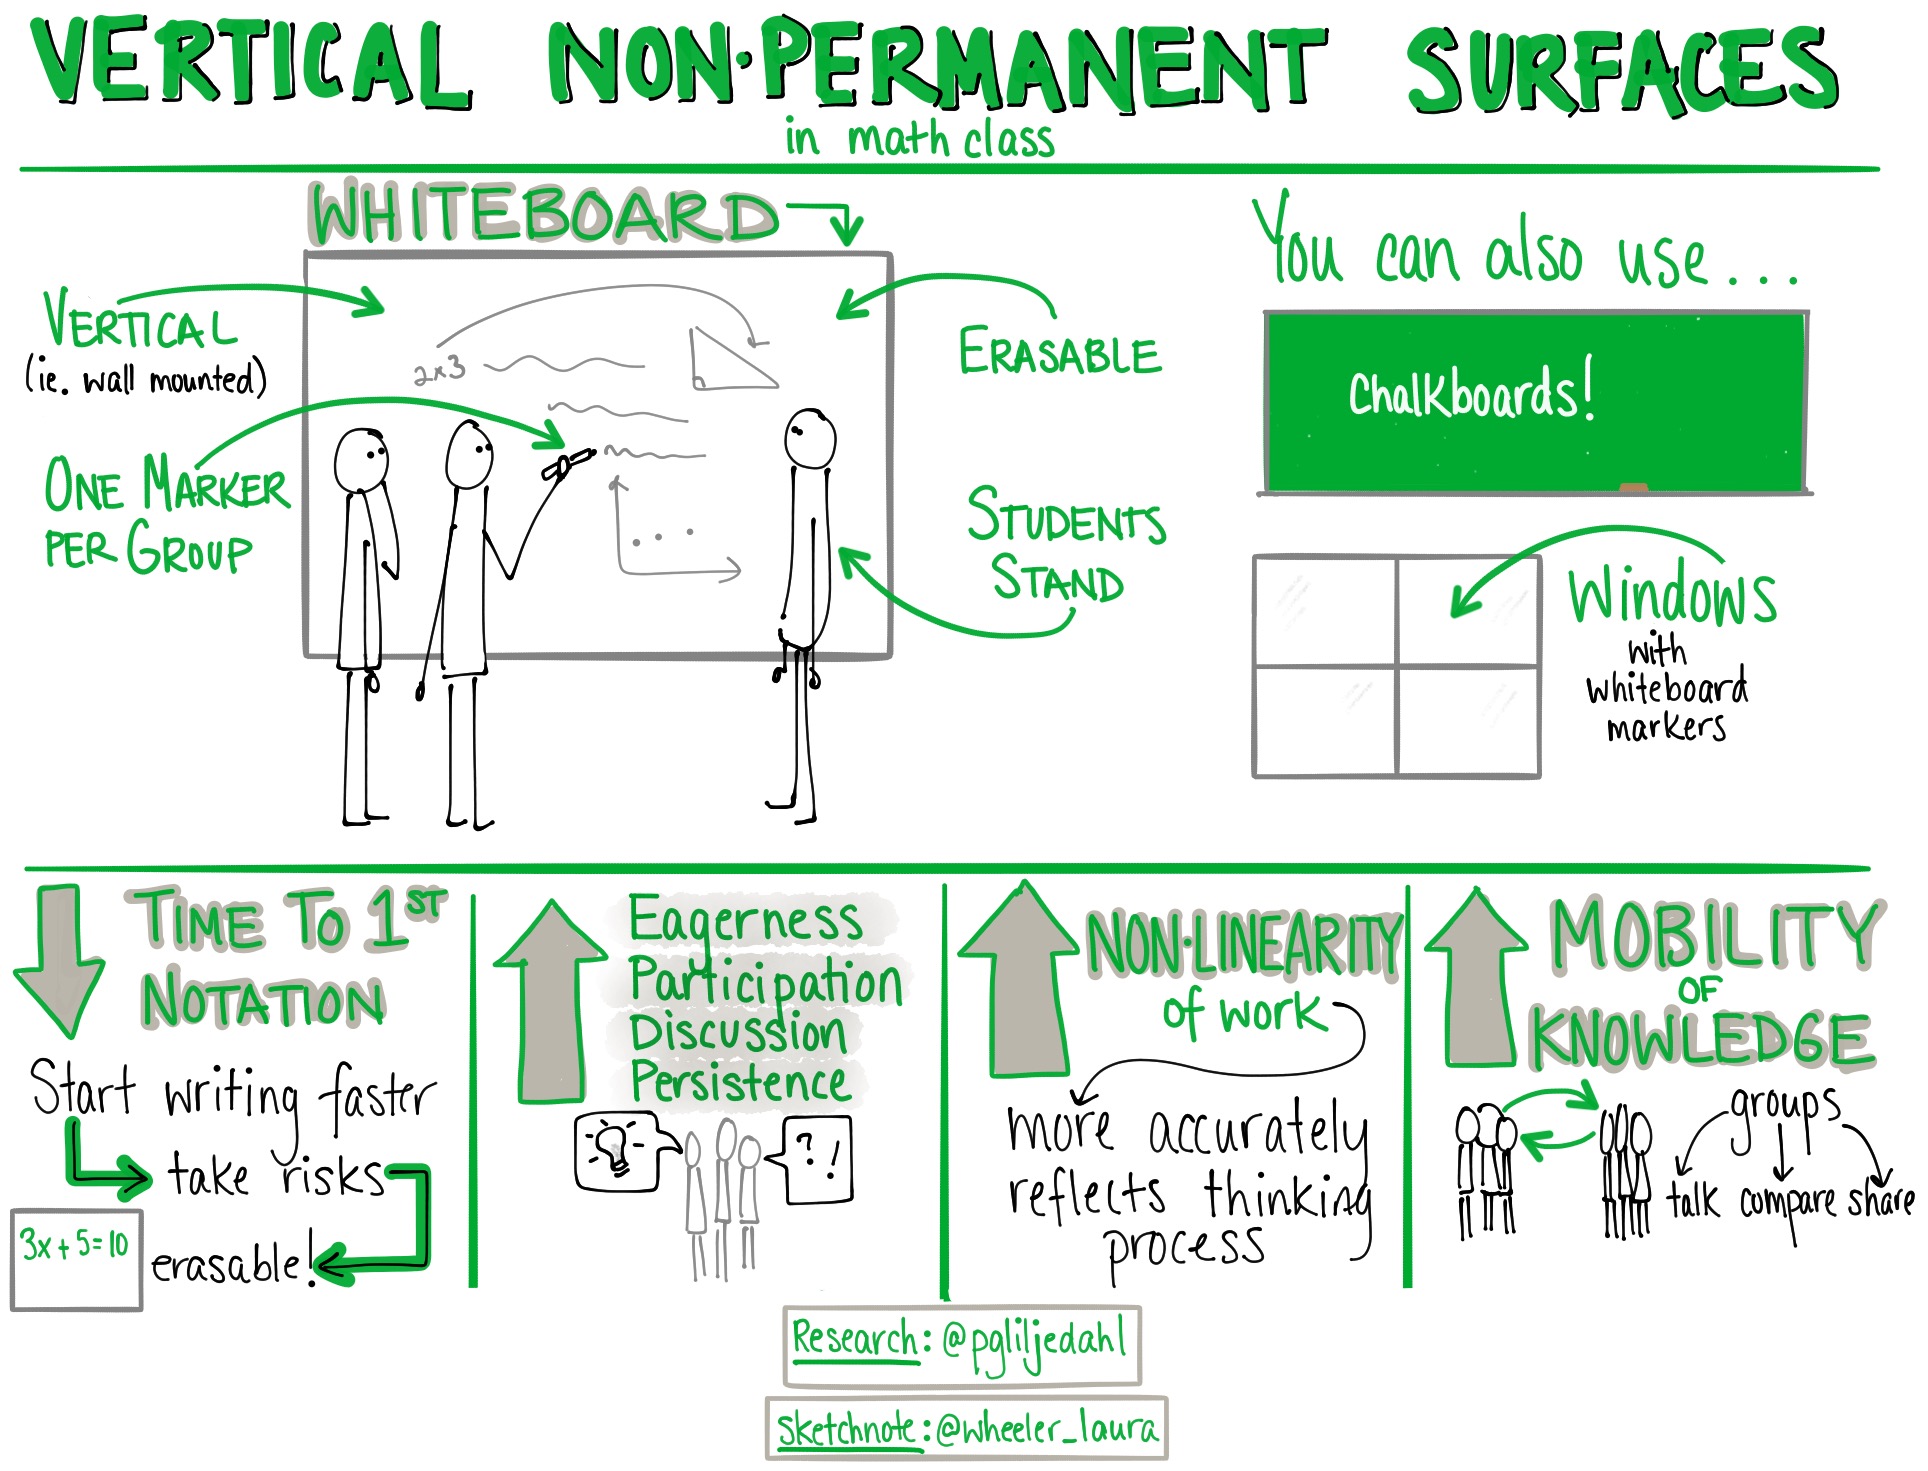 VERTICAL NON-PERMANENT SURFACES
in math class
WHITEBOARD
VERTICAL
(ie. wall mounted)
ONE MARKER
PER GROUP
2x3
ERASABLE
STUDENTS
STAND
You can also use...
Chalkboards!
Windows
with
whiteboard
markers
TIME TO 1ST
NOTATION
Start writing faster
take risks
erasable!
3x + 5 = 10
Eagerness
Participation
Discussion
Persistence
? !
NON-LINEARITY
of work
more accurately
reflects thinking
process
MOBILITY
OF
KNOWLEDGE
groups
talk compare share
Research: @pgliljedahl
Sketchnote: @wheeler_laura